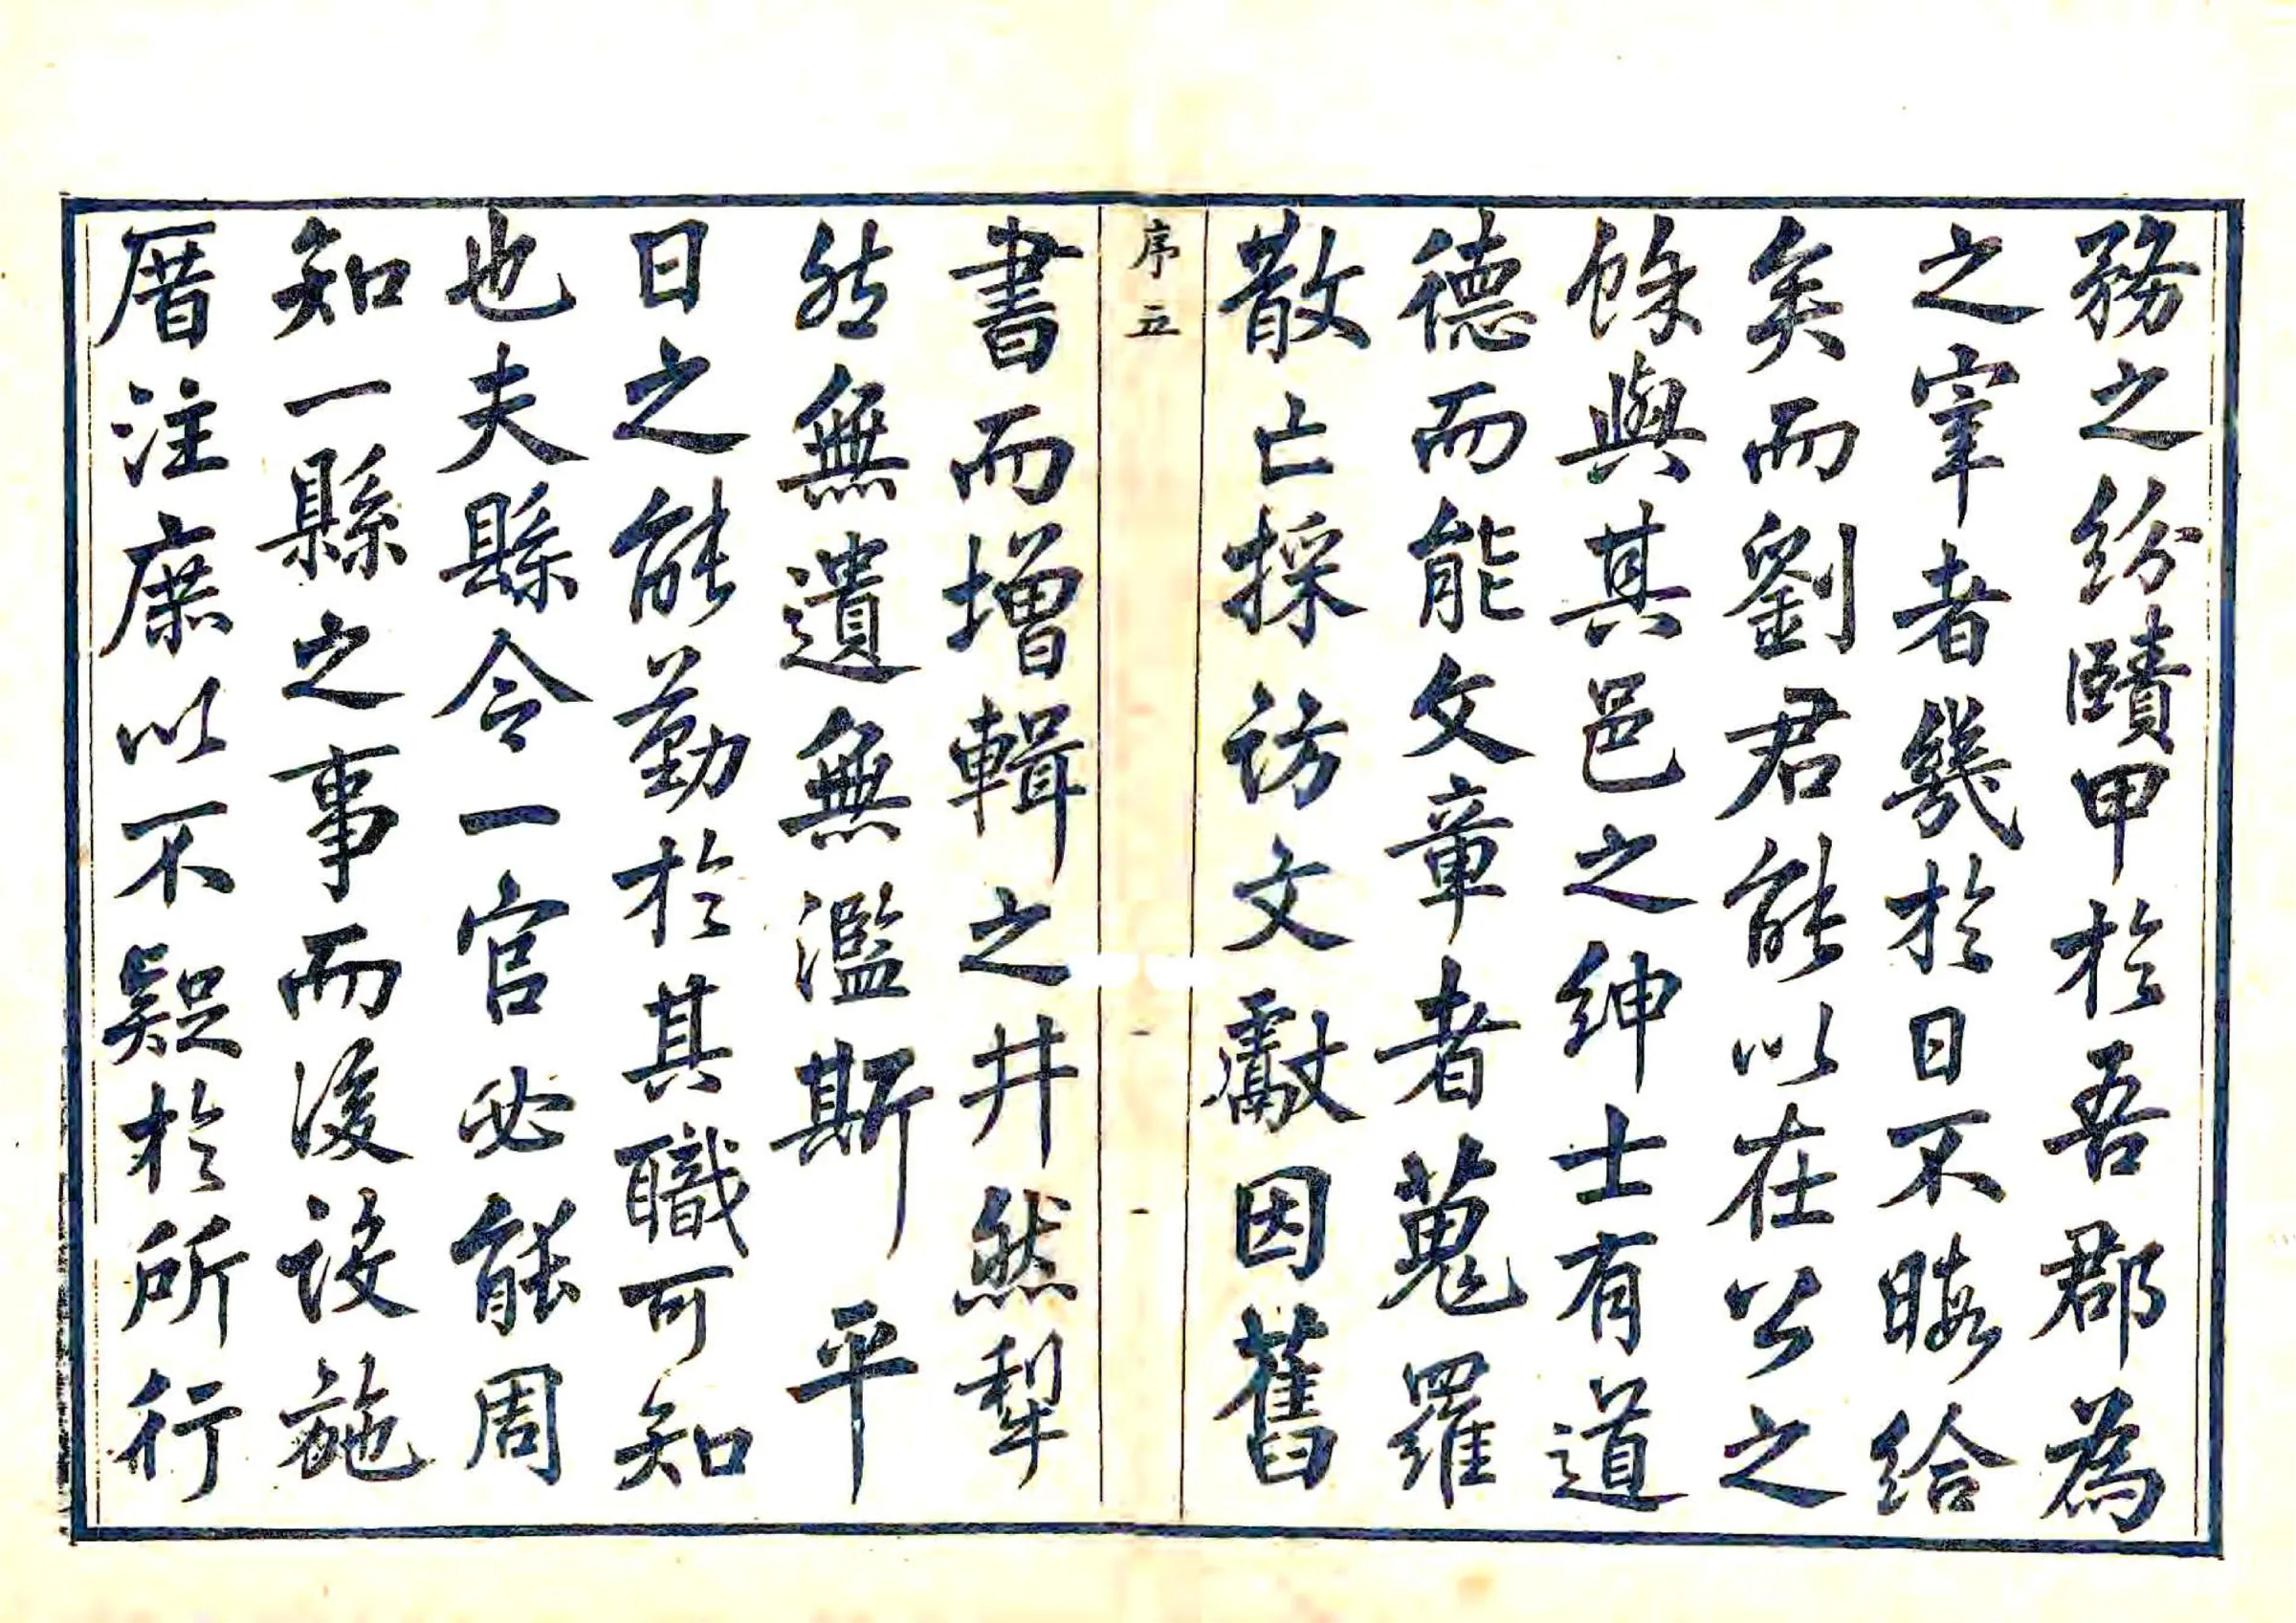 務之紛賾甲於吾郡為
之宰者幾於日不暇給
矣而劉君能以在公之
餘與其邑之紳士有道
德而能文章者蒐羅
散亡採訪文獻因舊
序五
書而增輯之井然犁
然無遺無濫斯平
日之能勤於其職可知
也夫縣令一官必能周
知一縣之事而後設施
厝注庶以不疑於所行